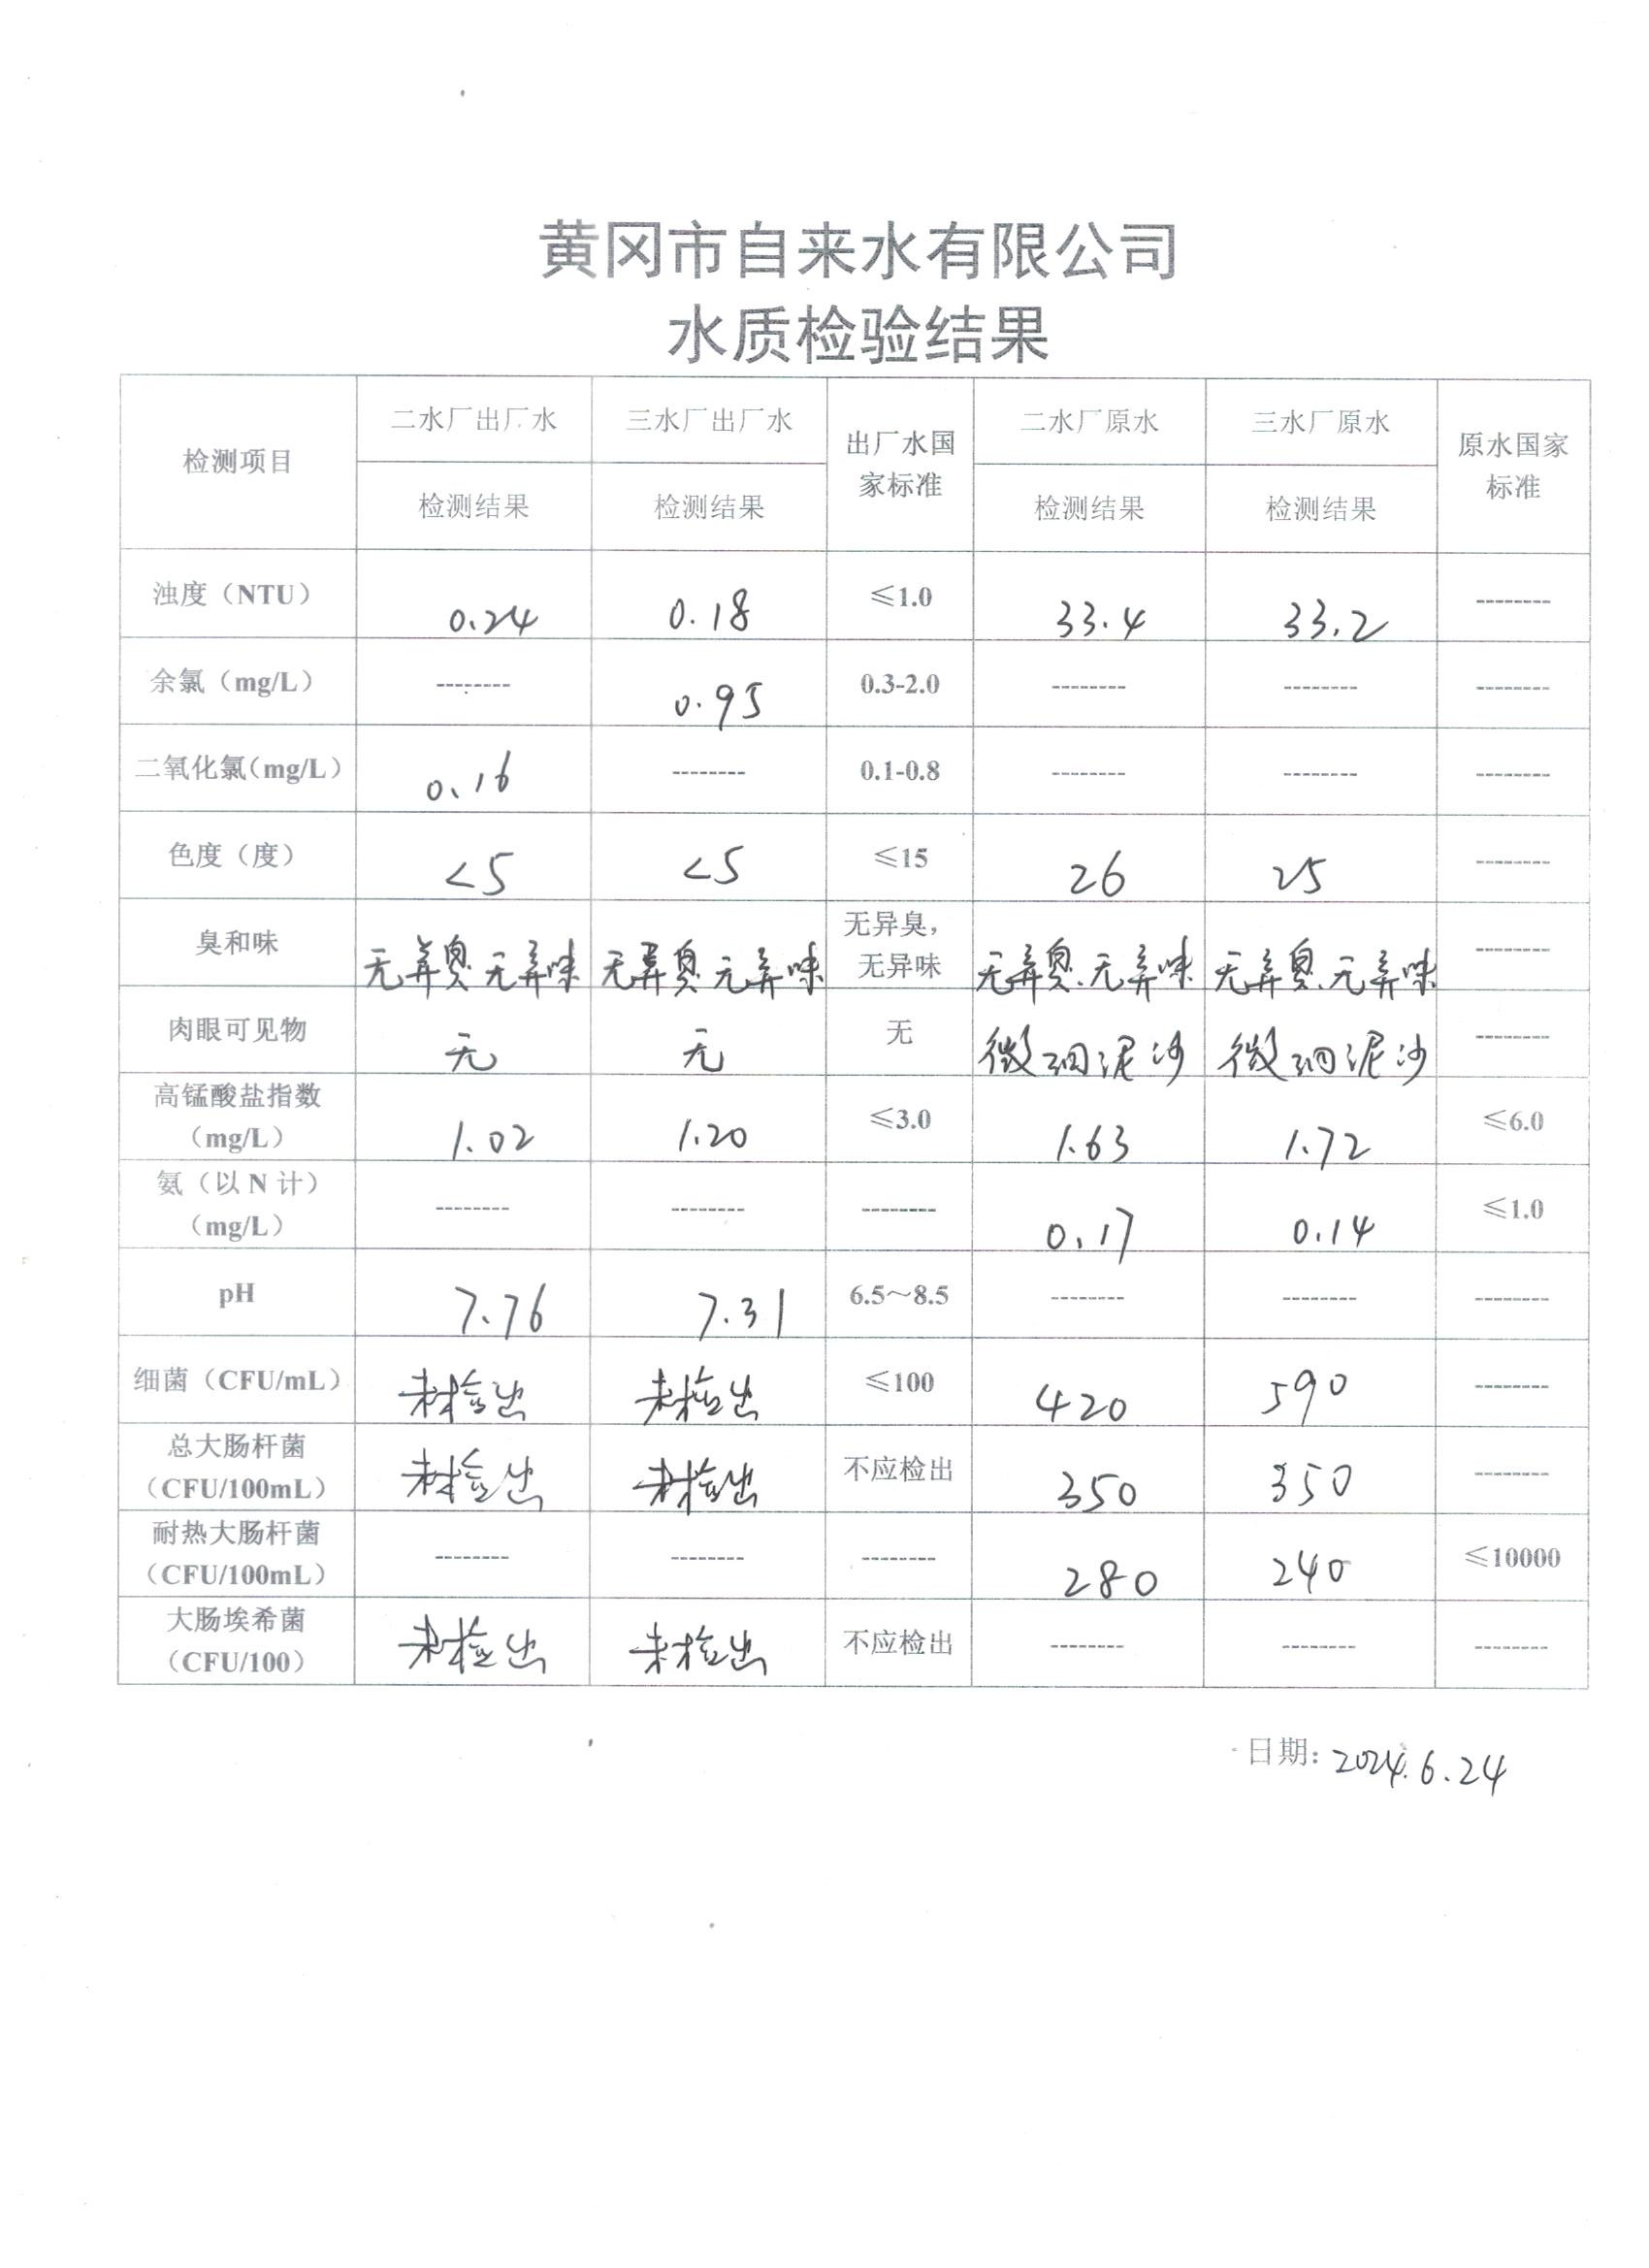 黄冈市自来水有限公司
水质检验结果
检测项目 二水厂出厂水 三水厂出厂水 出厂水国家标准 二水厂原水 三水厂原水 原水国家标准
检测结果 检测结果 检测结果 检测结果
浊度（NTU） 0.24 0.18 ≤1.0 33.4 33.2 --------
余氯（mg/L） -------- 0.95 0.3-2.0 -------- -------- --------
二氧化氯(mg/L) 0.16 -------- 0.1-0.8 -------- -------- --------
色度（度） <5 <5 ≤15 26 25 --------
臭和味 无异臭.无异味 无异臭.无异味 无异臭，无异味 无异臭.无异味 无异臭.无异味 --------
肉眼可见物 无 无 无 微细泥沙 微细泥沙 --------
高锰酸盐指数（mg/L） 1.02 1.20 ≤3.0 1.63 1.72 ≤6.0
氨（以N计）（mg/L） -------- -------- -------- 0.17 0.14 ≤1.0
pH 7.76 7.31 6.5～8.5 -------- -------- --------
细菌（CFU/mL） 未检出 未检出 ≤100 420 590 --------
总大肠杆菌（CFU/100mL） 未检出 未检出 不应检出 350 350 --------
耐热大肠杆菌（CFU/100mL） -------- -------- -------- 280 240 ≤10000
大肠埃希菌（CFU/100） 未检出 未检出 不应检出 -------- -------- --------
日期: 2024.6.24